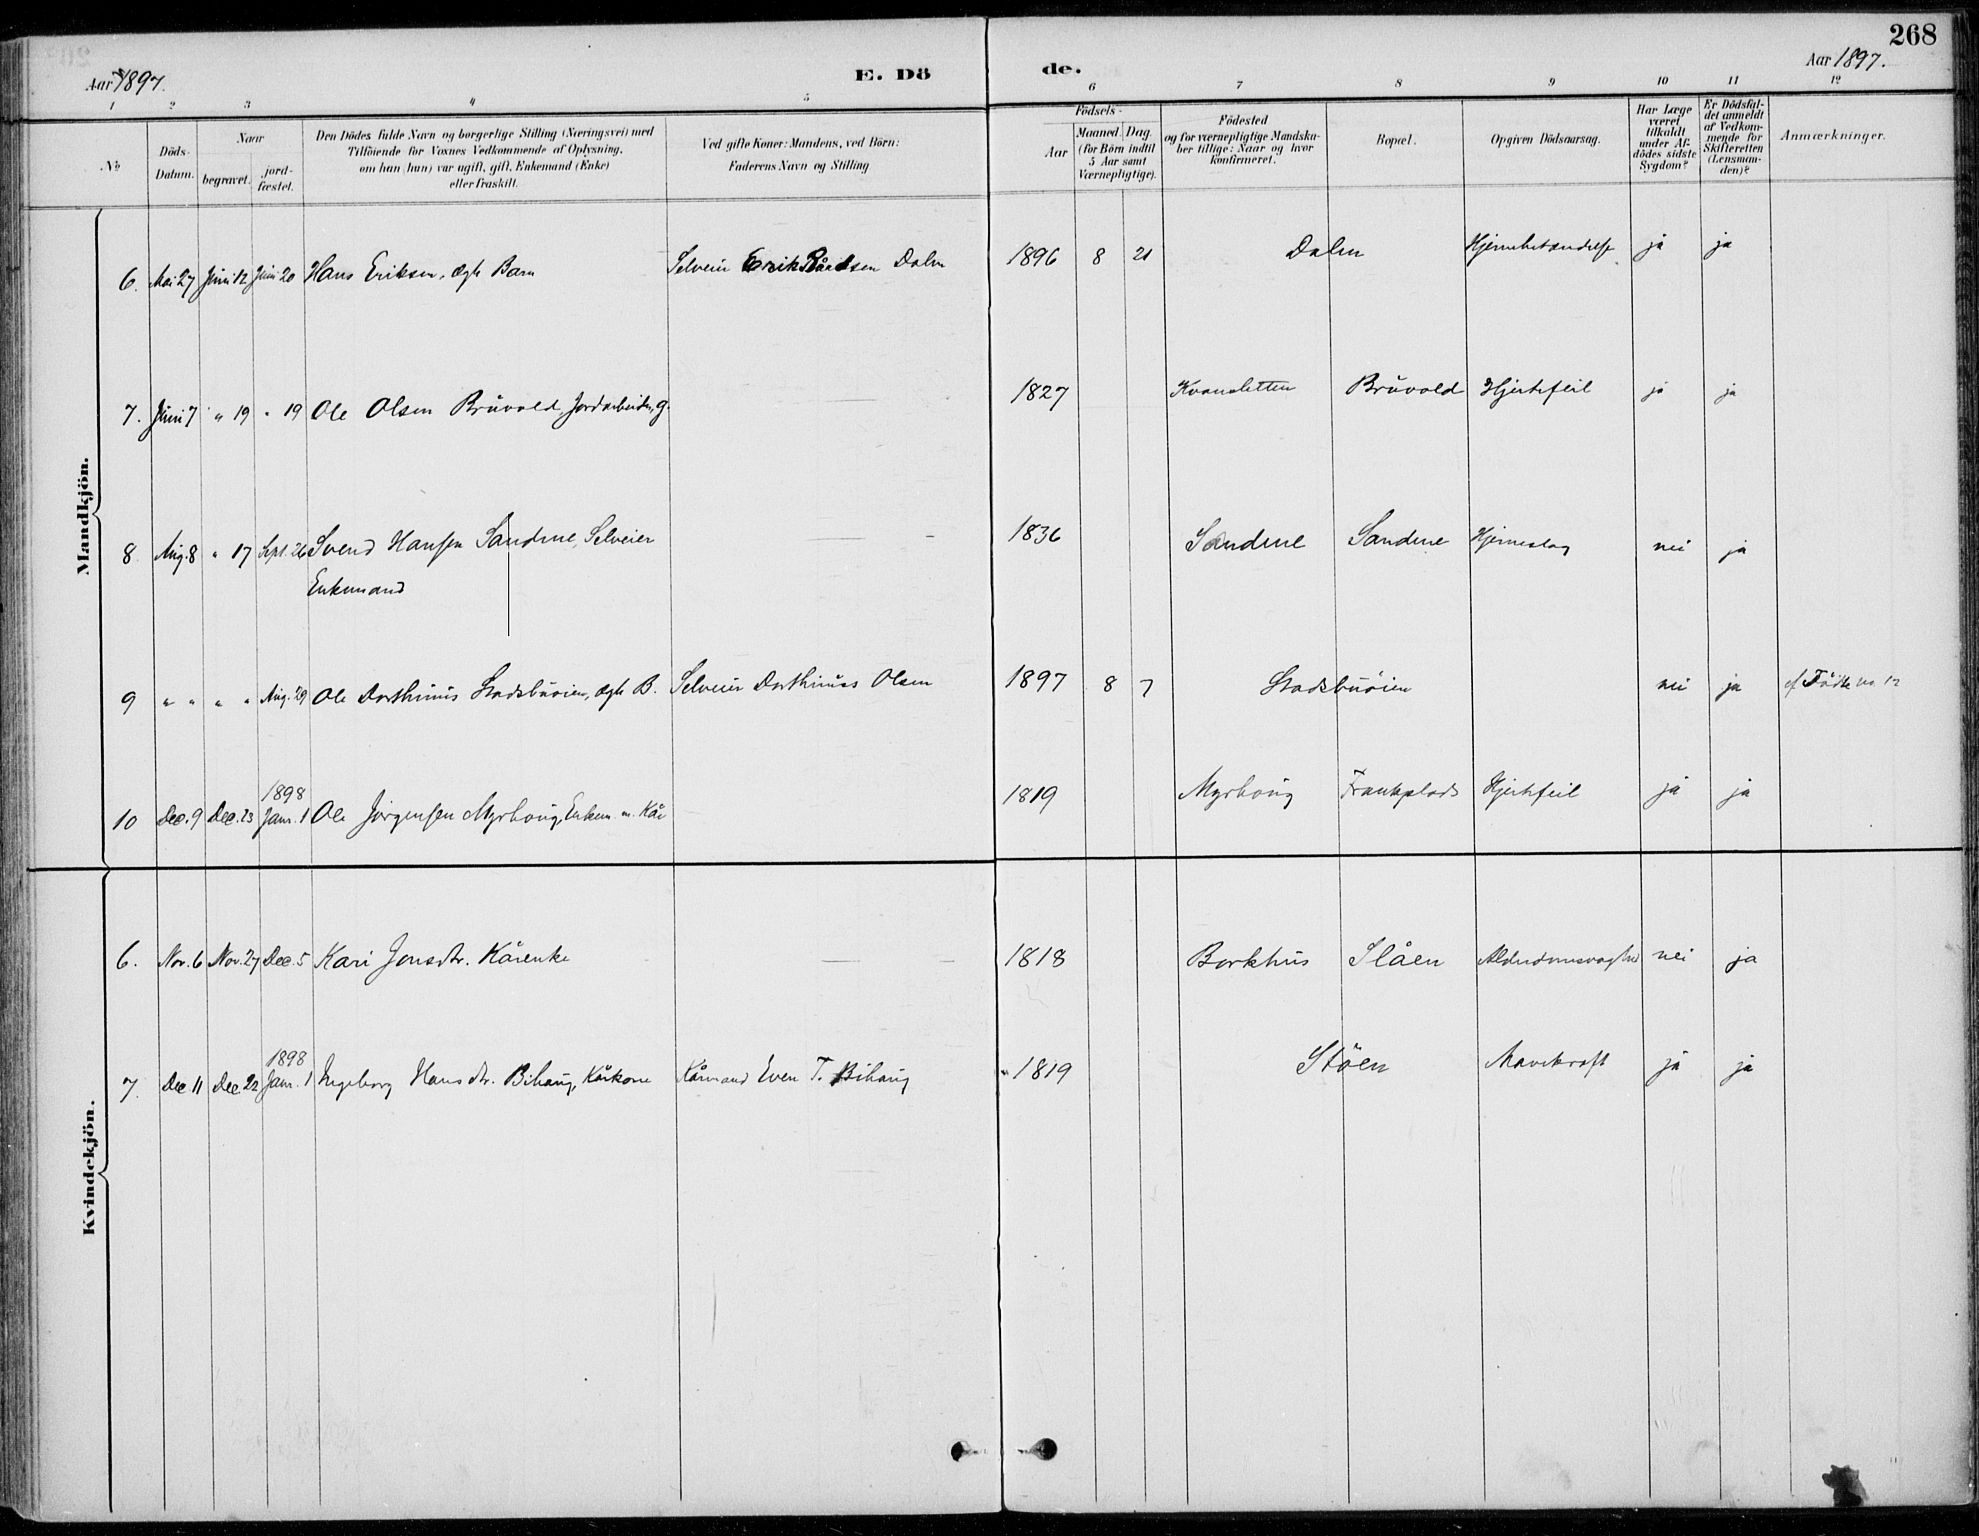 268
Aar 1897.
E. Dö
de.
Aar 1897.
1 2 3 4 5 6 7 8 9 10 11 12
No
Döds-
Datum.
Naar
begravet.
jord-
fæstet.
Den Dödes fulde Navn og borgerlige Stilling (Næringsvei) med
Tilföiende for Voxnes Vedkommende af Oplysning,
om han (hun) var ugift, gift, Enkemand (Enke)
eller fraskilt.
Ved gifte Koner: Mandens, ved Börn:
Faderens Navn og Stilling
Födsels-
Aar
Maaned. Dag.
(for Börn indtil
5 Aar samt
Værnepligtige).
Födested
og for værnepligtige Mandska-
ber tillige: Naar og hvor
konfirmeret.
Bopæl.
Opgiven Dödsaarsag.
Har Læge
været
tilkaldt
under Af-
dödes sidste
Sygdom?
Er Dödsfal-
det anmeldt
af Vedkom-
mende for
Skifteretten
(Lensman-
den)?
Anmærkninger.
Mandkjön.
6. Mai 27 Juni 12 Juni 20 Hans Eriksen, ægte Barn Selveier Erik Pålsen Dalen 1896 8 21 Dalen Hjernebetændelse ja ja
7. Juni 7 " 19 " 19 Ole Olsen Bruvold, Jordarbeider, g. 1827 Kvansletten Bruvold Hjertefeil ja ja
8 Aug. 8 " 17 Sept. 26 Svend Hansen Sandene, Selveier 1836 Sandene Sandene Hjerneslag nei ja
Enkemand
9 " " " " Aug. 29 Ole Dorthinus Stadsbuøien, ægte B. Selveier Dorthinus Olsen 1897 8 7 Stadsbuøien nei ja cf Födte no. 12
1898
10 Dec. 9 Dec. 23 Janr. 1 Ole Jørgensen Myrhoug, Enkem. m. Kår 1819 Myrhoug Frankplads Hjertefeil ja ja
Kvindekjön.
6. Nov. 6 Nov. 27 Dec. 5 Kari Jonsdtr. Kårenke 1818 Borkhus Slåen Alderdomssvaghed nei ja
1898
7. Dec 11 Dec 22 Janr. 1 Ingeborg Hansdtr. Bihaug, Kårkone Kårmand Even T. Bihaug 1819 Støen Mavekræft ja ja